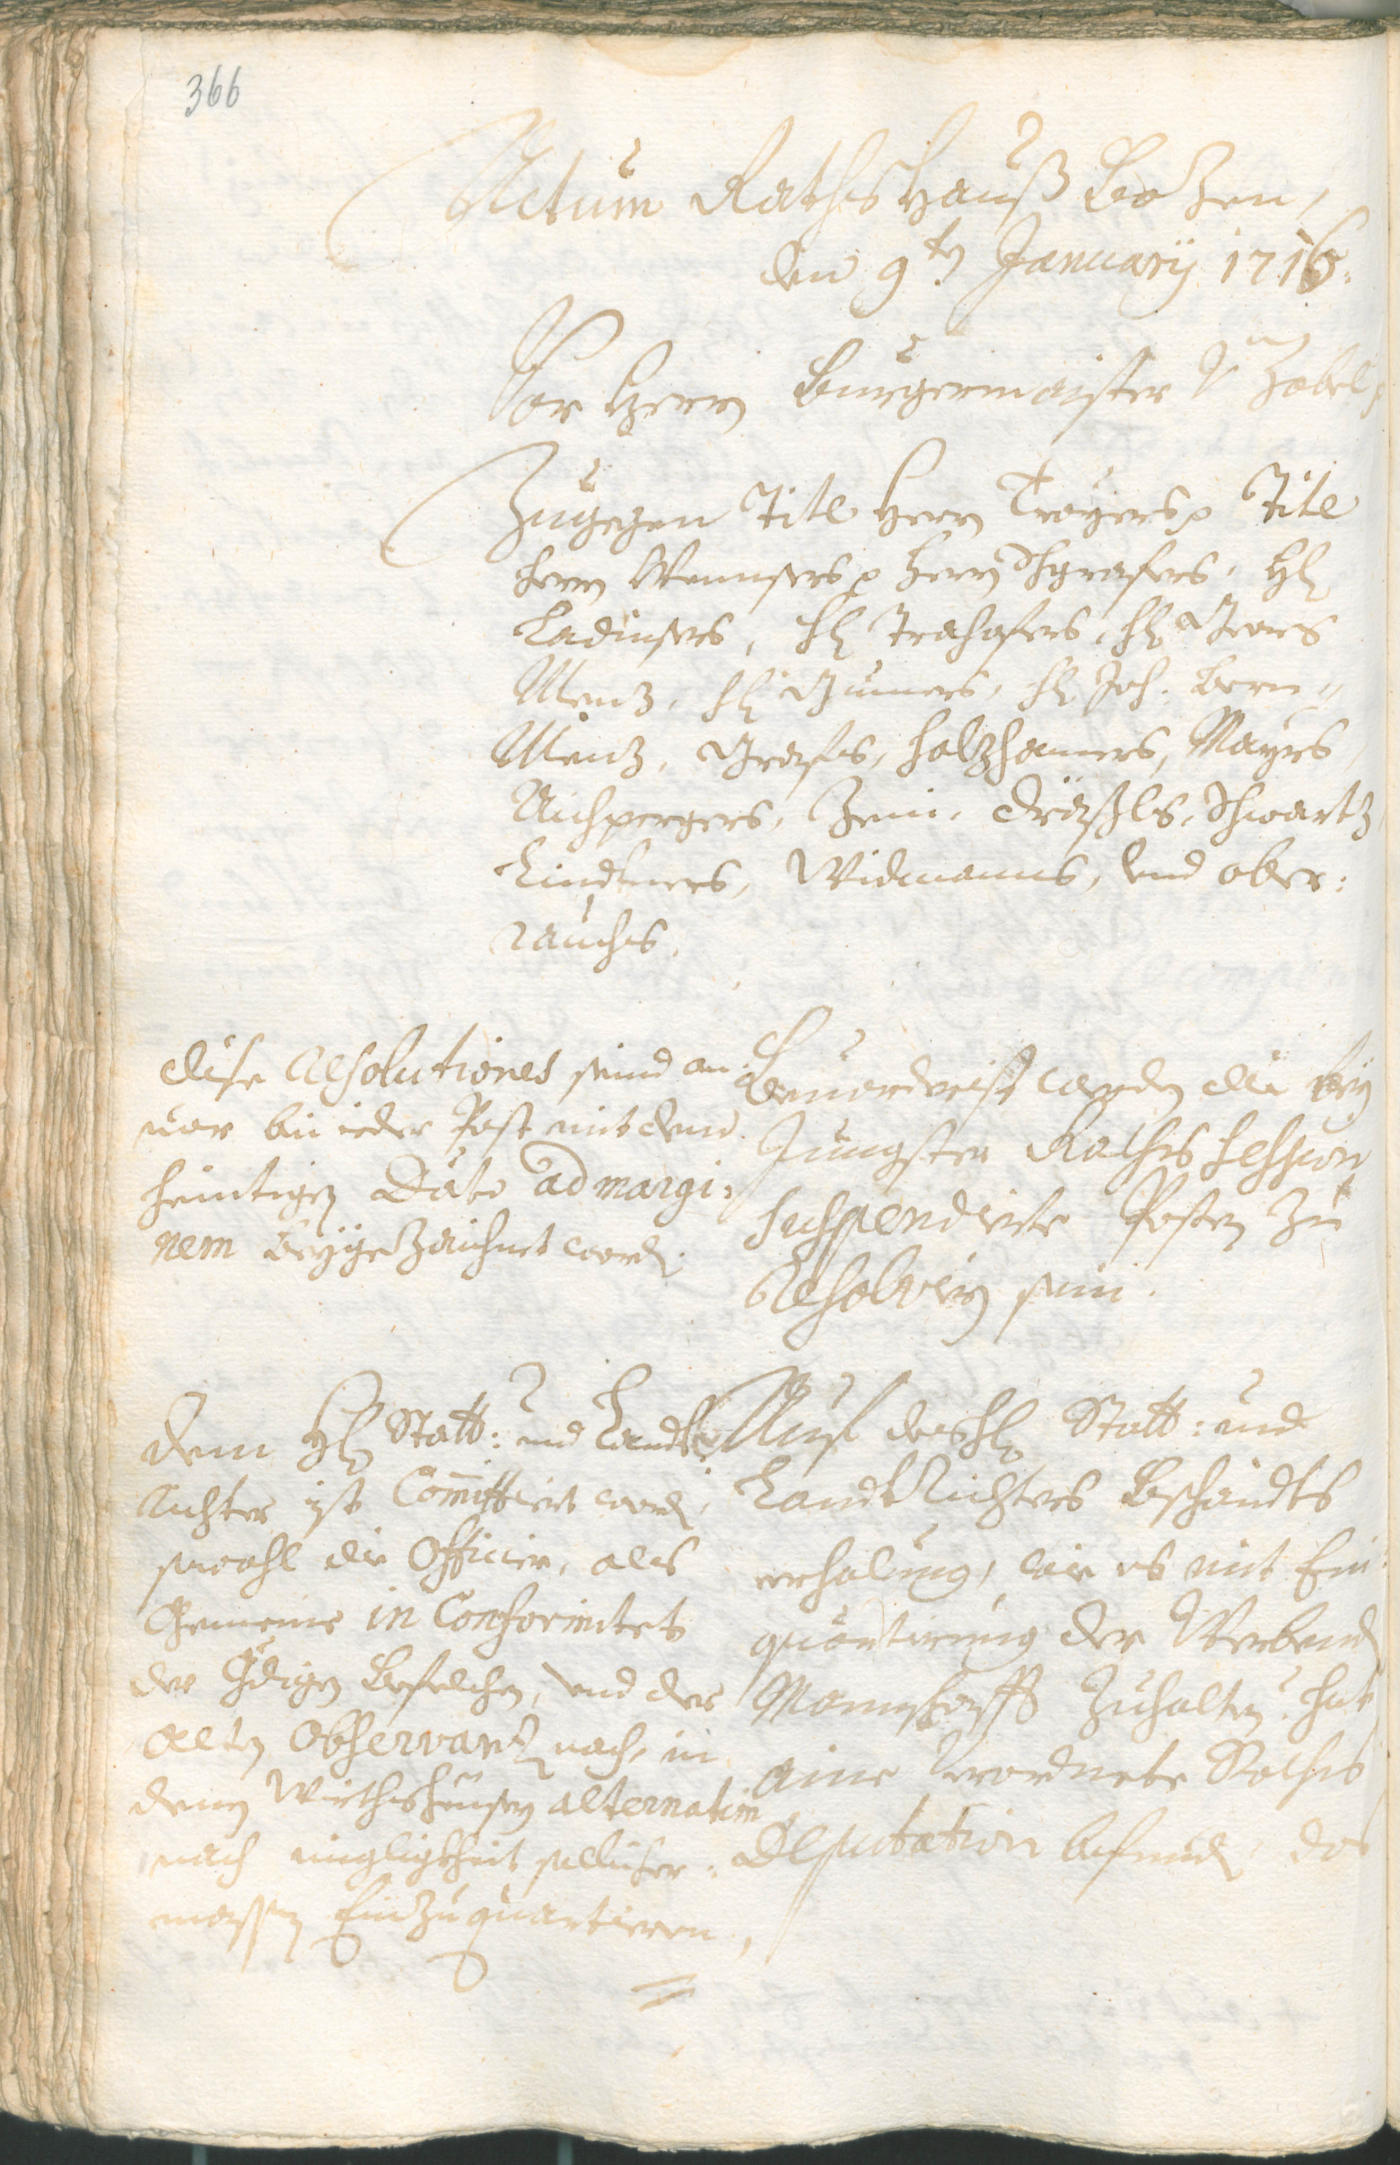 366
Actum Rathshauß Bozen,
den 9ten January 1716.
Vor Herrn Burgermaister v. Zobel
Zugegen Titl Herrn Troyers, Titl
Herrn Wennsers, Herrn Schgrafers, Hl
Ladinsers, Hl Hl Georg
Menz, Hl Gumers, Hl Joh. Bern=
Menz, Grafs, Holzhamers, Mayrs
Aichpergers, Zeni, Schwartz
Lindtners, Widmanns, und ober:
rauchs.
Dise Resolutiones seind an:
vor bei ieder Post mit dem
heuntigen Dato ad margi:
nem beygezaichnet word.
werden die bey
Jungster Raths Session
suspendierte Posten zu
Resolviern sein.
Dem Hl Statt: und Landt
Richter ist Committiert word,
sowohl die Officier, als
Gemeine in Conformitet
der Gdigen Befelchen, und der
alten Observanz nach, in
denen Würthsheusern alternatim
nach migligkheit sollicher
massen Einzuquartieren,
Auf des Hl Statt: und
Landt Richters Beschaidts
erholung, wie es mit Ein:
quartierung der Werbend
Mannschafft zuhalten, hat
aine verordnete Raths
Deputation befund, das